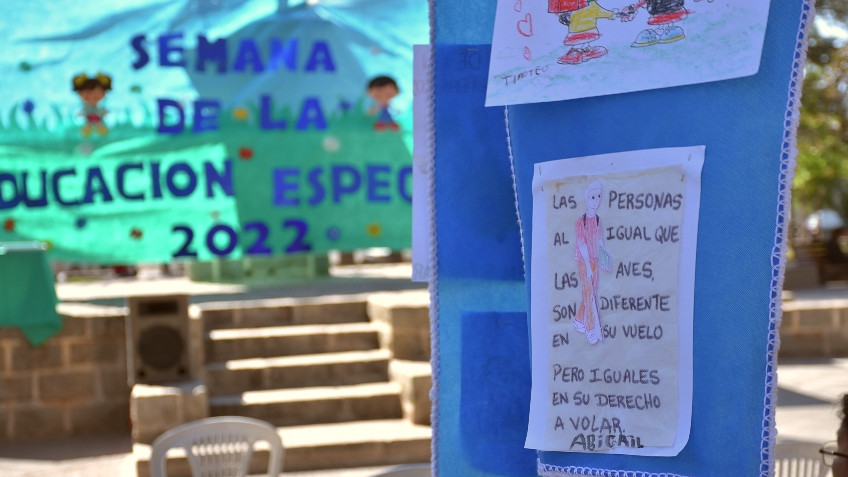 SEMANA
DE LA
DUCACION ESPEC
2022
LAS PERSONAS
AL IGUAL QUE
LAS AVES,
SON DIFERENTE
EN SU VUELO
PERO IGUALES
EN SU DERECHO
A VOLAR.
ABIGAIL